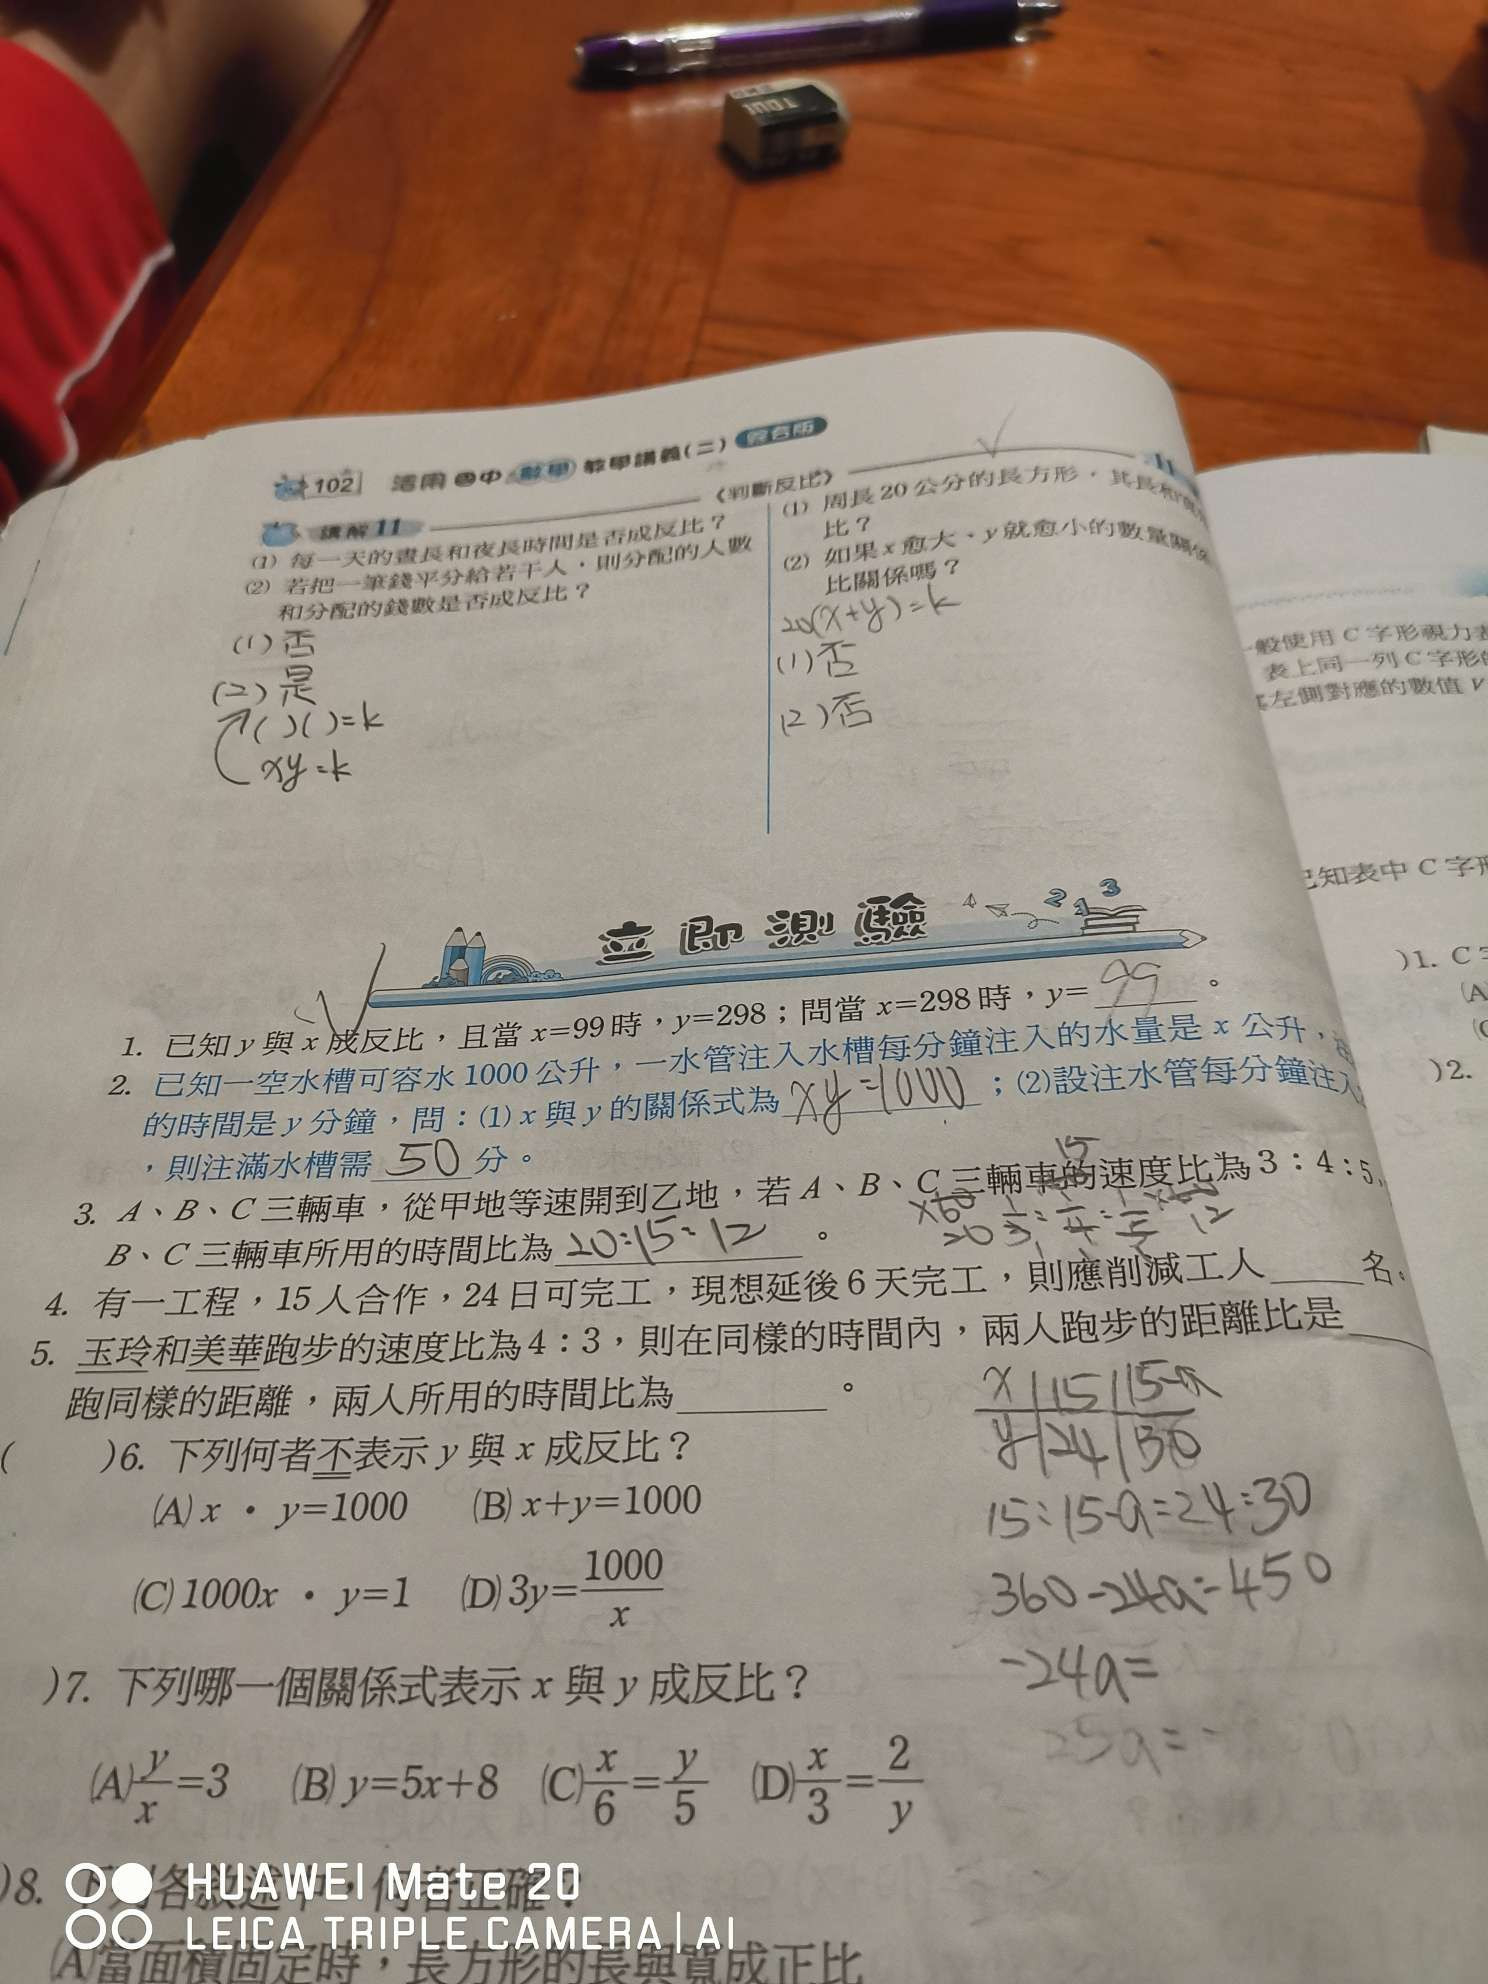 102 活用國中 數學 教學講義(二) 教師版
講解 11
《判斷反比》
(1) 每一天的晝長和夜長時間是否成反比？
(2) 若把一筆錢平分給若干人，則分配的人數
和分配的錢數是否成反比？
(1) 否
(2) 是
( )( )=k
xy=k
(1) 周長20公分的長方形，其長和
比？
(2) 如果x愈大、y就愈小的數量關係
比關係嗎？
20(x+y)=k
(1) 否
(2) 否
立即測驗
1 2 3
1. 已知y與x成反比，且當x=99時，y=298；問當x=298時，y= 99 。
2. 已知一空水槽可容水1000公升，一水管注入水槽每分鐘注入的水量是x公升，
的時間是y分鐘，問：(1) x與y的關係式為 xy=1000 ；(2)設注水管每分鐘注入
，則注滿水槽需 50 分。
3. A、B、C三輛車，從甲地等速開到乙地，若A、B、C三輛車的速度比為3：4：5，
B、C三輛車所用的時間比為 20:15:12 。
15
×60 1/3 : 1/4 : 1/5 ×60
20 12
4. 有一工程，15人合作，24日可完工，現想延後6天完工，則應削減工人 名。
5. 玉玲和美華跑步的速度比為4：3，則在同樣的時間內，兩人跑步的距離比是
跑同樣的距離，兩人所用的時間比為 。
x 15 15-a
y 24 30
15:15-a=24:30
360-24a=450
-24a=
25a=-
( )6. 下列何者不表示y與x成反比？
(A) x・y=1000 (B) x+y=1000
(C) 1000x・y=1 (D) 3y=1000/x
)7. 下列哪一個關係式表示x與y成反比？
(A) y/x=3 (B) y=5x+8 (C) x/6=y/5 (D) x/3=2/y
)8. 下列各敘述中，何者正確？
(A) 當面積固定時，長方形的長與寬成正比
一般使用C字形視力表
表上同一列C字形的
左側對應的數值V
已知表中C字形
)1. C字
(A
(C
)2.
HUAWEI Mate 20
LEICA TRIPLE CAMERA | AI